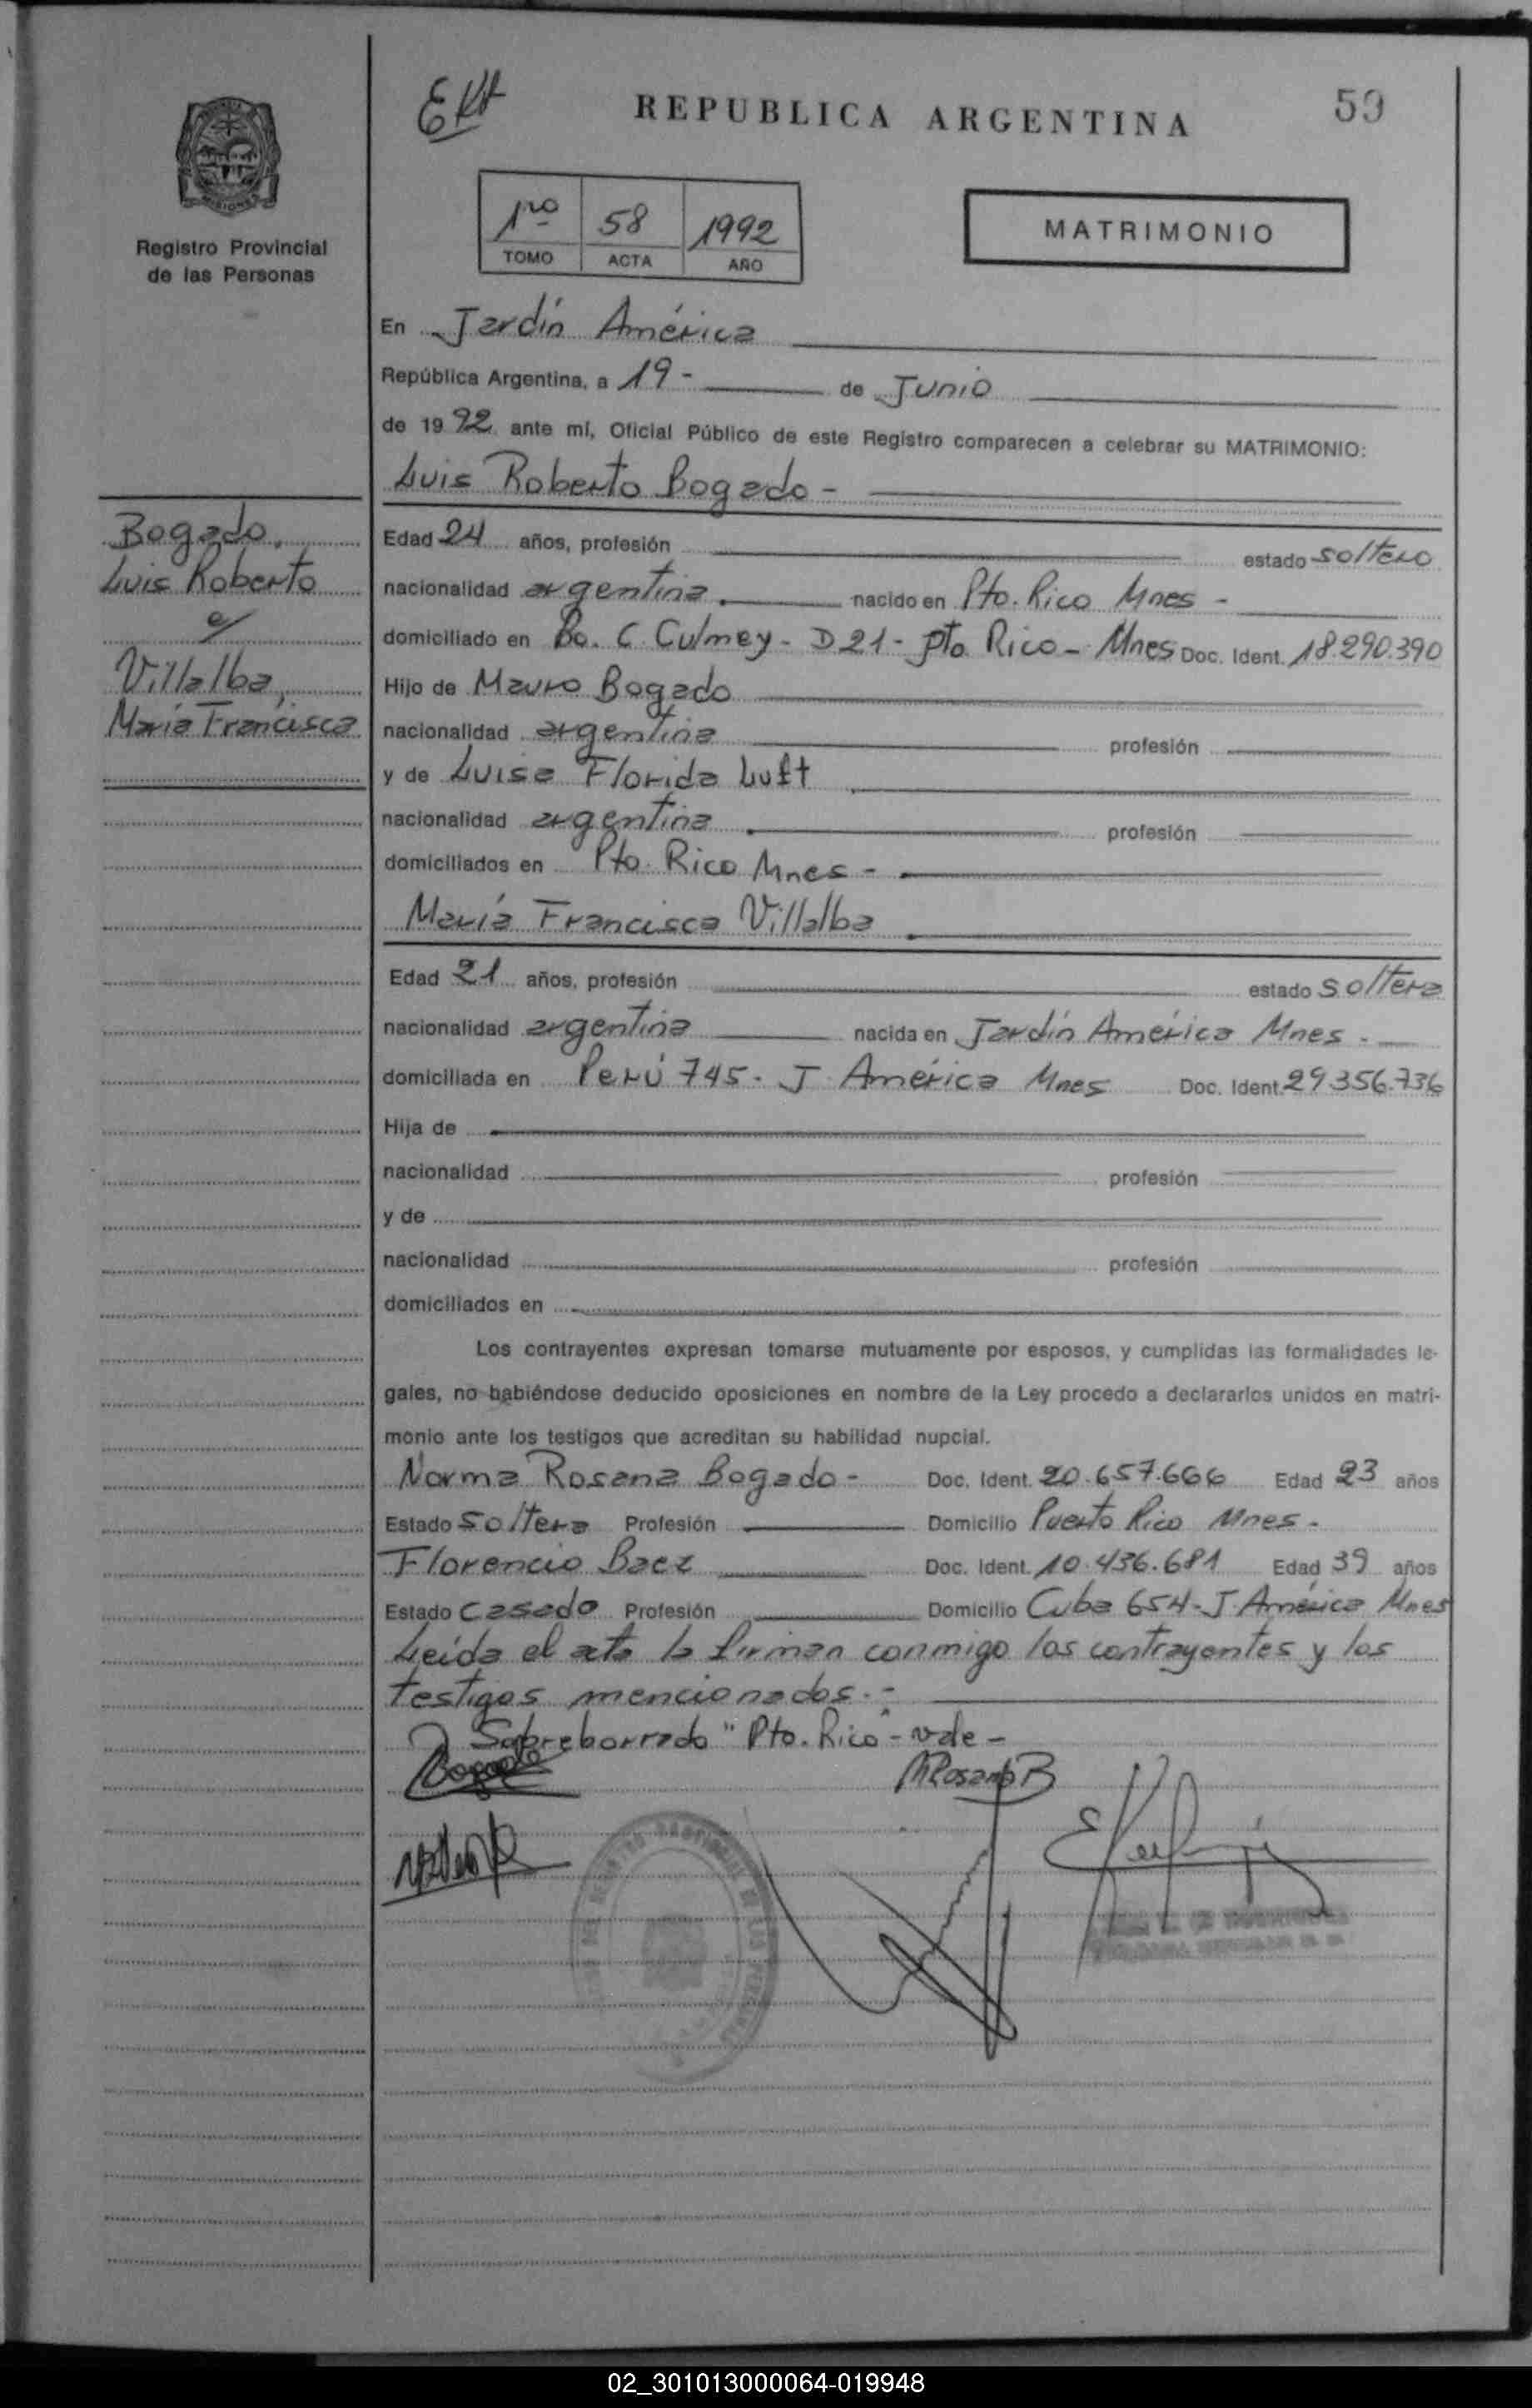 Ext
REPUBLICA ARGENTINA
59
MISIONES
Registro Provincial
de las Personas
1ro 58 1992
TOMO ACTA AÑO
MATRIMONIO
En Jardín América
República Argentina, a 19 - de Junio
de 1992 ante mí, Oficial Público de este Registro comparecen a celebrar su MATRIMONIO:
Luis Roberto Bogado -
Bogado,
Luis Roberto
c/
Villalba,
María Francisca
Edad 24 años, profesión estado soltero
nacionalidad argentina. nacido en Pto. Rico Mnes -
domiciliado en Bo. C. Culmey - D 21 - Pto Rico - Mnes Doc. Ident. 18.290.390
Hijo de Mauro Bogado
nacionalidad argentina profesión
y de Luisa Florida Luft
nacionalidad argentina profesión
domiciliados en Pto. Rico Mnes -
María Francisca Villalba
Edad 21 años, profesión estado soltera
nacionalidad argentina nacida en Jardín América Mnes -
domiciliada en Perú 745 - J. América Mnes Doc. Ident. 29.356.736
Hija de
nacionalidad profesión
y de
nacionalidad profesión
domiciliados en
Los contrayentes expresan tomarse mutuamente por esposos, y cumplidas las formalidades le-
gales, no habiéndose deducido oposiciones en nombre de la Ley procedo a declararlos unidos en matri-
monio ante los testigos que acreditan su habilidad nupcial.
Norma Rosana Bogado - Doc. Ident. 20.657.666 Edad 23 años
Estado soltera Profesión Domicilio Puerto Rico Mnes -
Florencio Baez Doc. Ident. 10.436.681 Edad 39 años
Estado casado Profesión Domicilio Cuba 654 - J. América Mnes
Leída el acta la firman conmigo los contrayentes y los
testigos mencionados.-
Sobreborrado "Pto. Rico" - vale -
Bogado
NRosana B
02_301013000064-019948